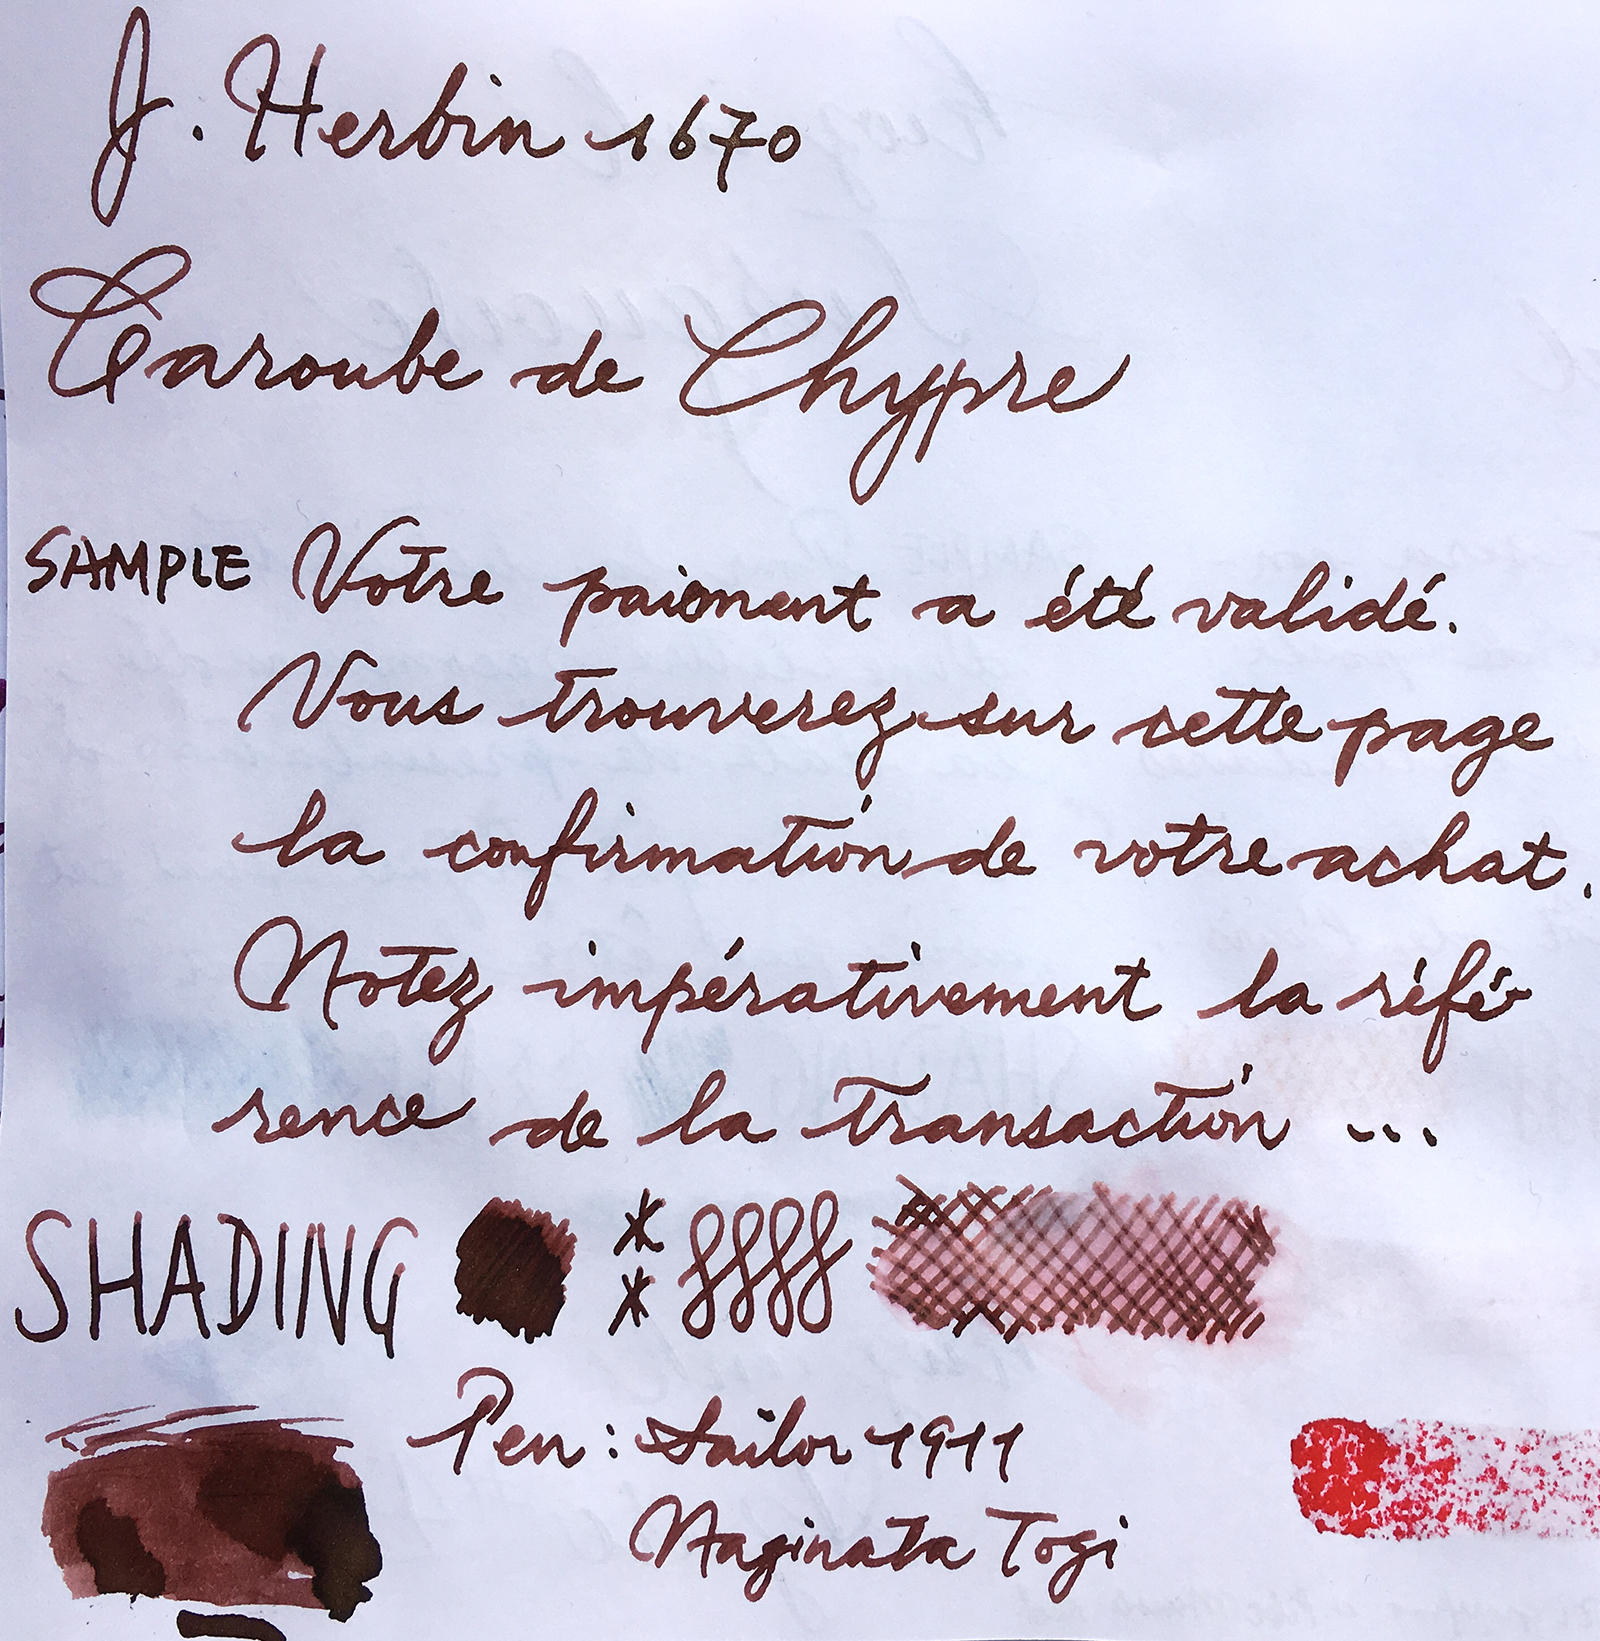 J. Herbin 1670
Caroube de Chypre
SAMPLE Votre paiement a été validé.
Vous trouverez sur cette page
la confirmation de votre achat.
Notez impérativement la réfé-
rence de la transaction ...
SHADING
Pen: Sailor 1911
Naginata Togi